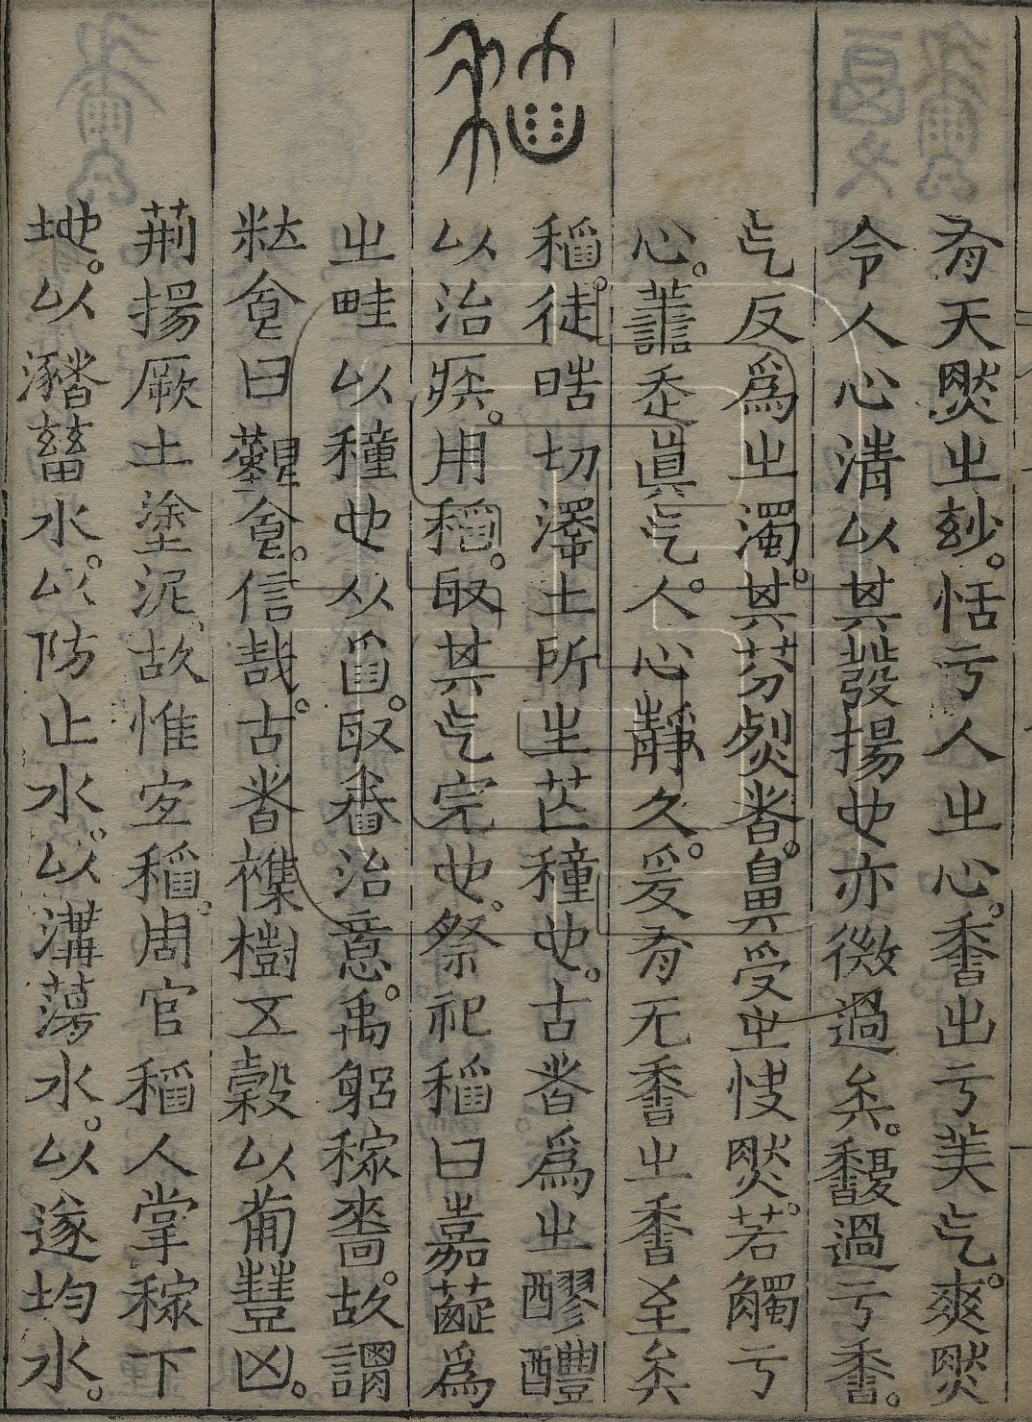 有天然之玅。恬亏人之心。香出亏美气。爽然
令人心清以其發揚也亦微過矣。馥過亏香。
气反爲之濁。其芬烈者。鼻受之忮然。若觸亏
心。眞气。人心靜久。爰有无香之香至矣
稻
稻。徒晧切澤土所生芒種也。古者爲之醪醴
以治疾。用稻。取其气完也。祭祀稻曰嘉蔬爲
之畦以種也从𦥑。取畬治意。禹躳稼嗇。故謂
食曰艱食。信哉。古者襍樹五穀以葡豐凶。
荊揚厥土塗泥故惟宐稻。周官稻人掌稼下
地。以瀦蓄水。以防止水。以溝蕩水。以遂均水。